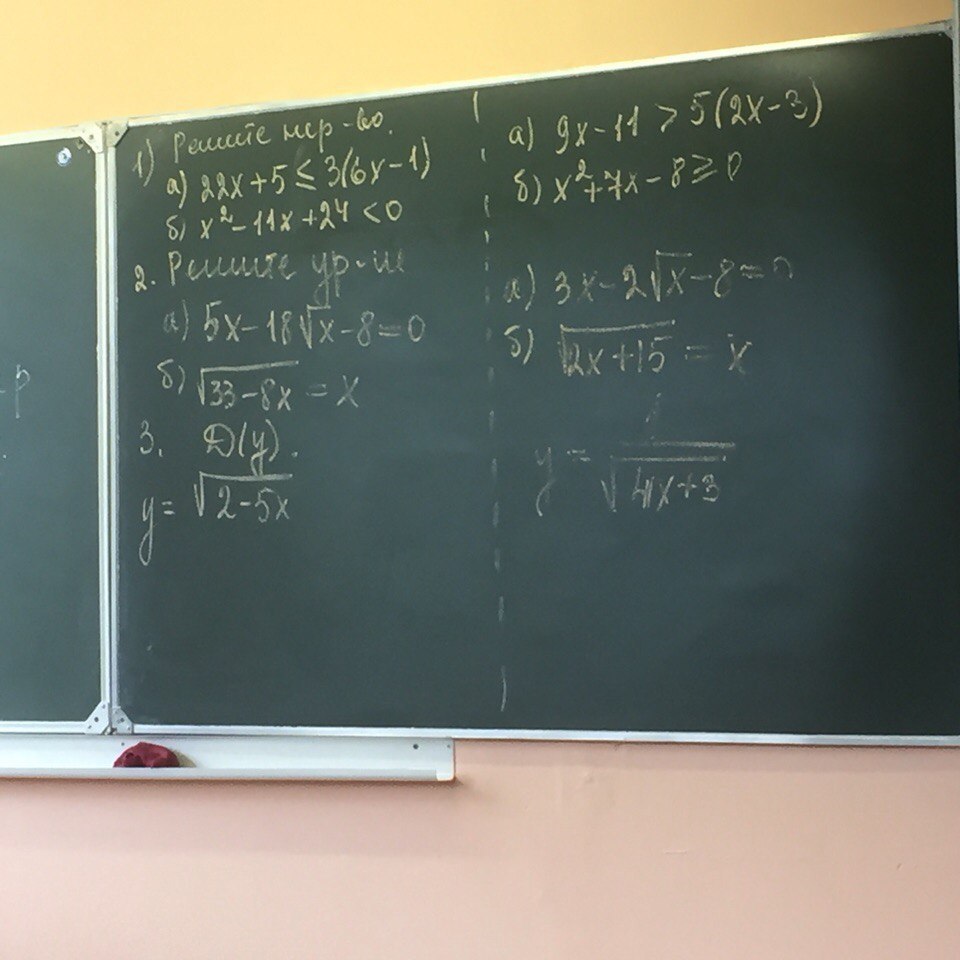 1) Решите нер-во.
а) 22x+5 ≤ 3(6x-1)
б) x²-11x+24 < 0
2. Решите ур-ие
а) 5x-18√x-8=0
б) √33-8x = x
3. D(y).
y= √2-5x
а) 9x-11 > 5(2x-3)
б) x²+7x-8 ≥ 0
а) 3x-2√x-8=0
б) √2x+15 = x
y = 1/√4x+3
-р